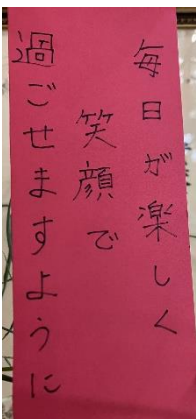 毎日が楽しく
笑顔で
過ごせますように